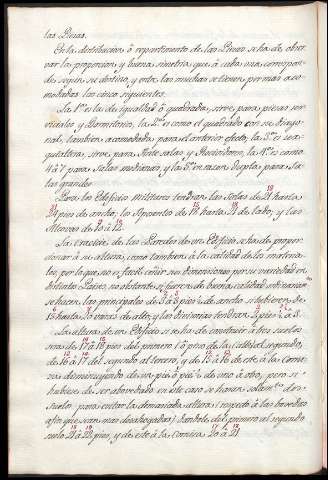 las Piezas.
En la distribucion ó repartimiento de las Piezas se ha de obser-
var la proporcion y buena simetria que á cada una correspon-
de segun su destino, y entre las muchas se tienen por mas aco-
modadas las cinco siguientes.
La 1ª es la de igualdad ó quadrada, sirve para piezas ser-
viciales y Dormitorios, la 2ª es como el quadrado con su diago-
nal, tambien acomodada para el anterior efecto; la 3ª es ses-
quialtera, sirve para Ante salas y Recividores, la 4ª es como
4 á 7 para Salas medianas, y la 5ª en razon dupla para Sa-
las grandes.
Para los Edificios militares tendran las Salas de 21 hasta
24 pies de ancho; los Aposentos de 15 hasta 18 de lado; y las
Alcovas de 9 á 12.
La de las Paredes de un Edificio se ha de propor-
cionar á su altura, como tambien á la calidad de los materia-
les, por lo que no es facil ceñir sus dimensiones por su variedad en
distintos Paises, no obstante si fueren de buena calidad
se hacen las principales de 3 á pies de ancho si tubieren de
hasta varas de alto; y las divisorias tendran 2 pies á 3.
La altura de un Edificio si se ha de construir á tres suelos
sera de 17 á 18 pies del primero ó piso de la Calle al segundo,
de 16 á 17 del segundo al tercero, y de 15 á 16 de este á la Corni-
sa disminuyendo de un pie ó pie y de uno á otro, pero si
hubiese de ser abovedado en este caso se haran dos
suelos para evitar la demasiada altura (respecto á las bovedas
afin que sean mas desahogadas) dandole del primero al segundo
suelo 21 á 22 pies, y de este á la Cornisa 20 á 21.